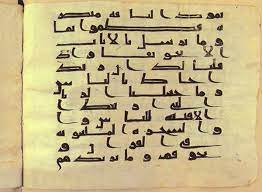 ثمود الناقة مبصر
ة فظلموا بها
وما نرسل بالايت
الا تخويفا واذ
قلنا لك ان ربك
احاط بالناس
وما جعلنا الريا
التي ارينك ا
لا فتنة للناس وا
لشجرة الملعونة
في القران و
نخوفهم فما يزيدهم